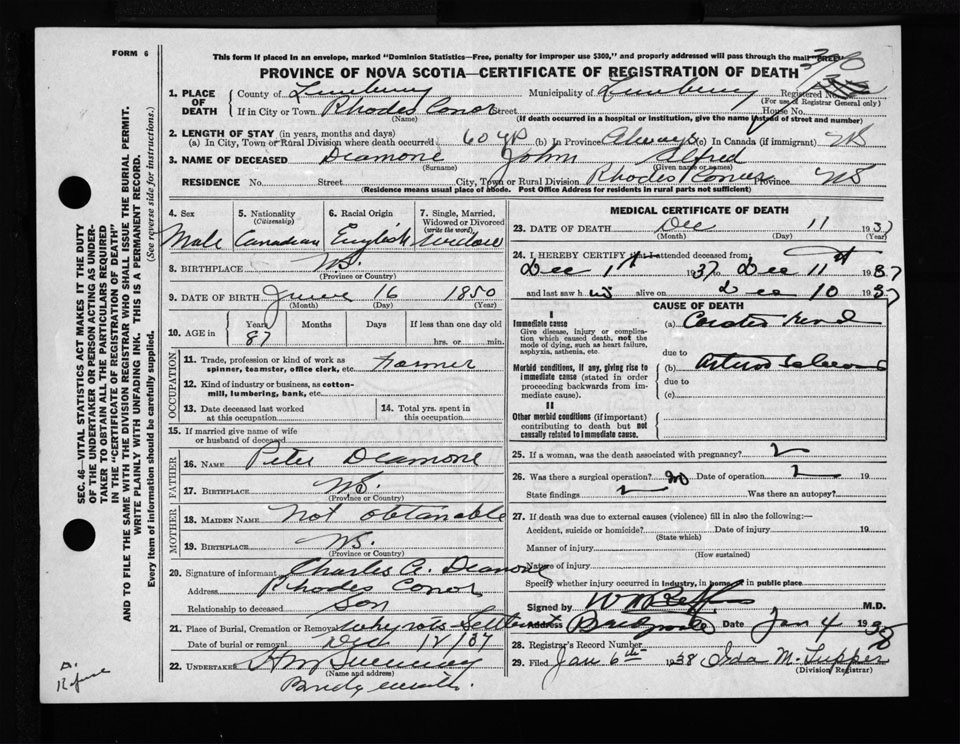 FORM 6
This form if placed in an envelope, marked "Dominion Statistics—Free, penalty for improper use $300," and properly addressed will pass through the mail
PROVINCE OF NOVA SCOTIA—CERTIFICATE OF REGISTRATION OF DEATH
1. PLACE OF DEATH County of Lunenburg Municipality of Lunenburg Registered No.
(For use of Registrar General only)
If in City or Town Rhodes Conor Street House No.
(Name) (If death occurred in a hospital or institution, give the name instead of street and number)
2. LENGTH OF STAY (in years, months and days)
(a) In City, Town or Rural Division where death occurred 60 yr (b) In Province Always (c) In Canada (if immigrant)
3. NAME OF DECEASED Deamone John Alfred
(Surname) (Given name or names)
RESIDENCE No. Street City, Town or Rural Division Rhodes Province NS
(Residence means usual place of abode. Post Office Address for residents in rural parts not sufficient)
4. Sex Male
5. Nationality (Citizenship) Canadian
6. Racial Origin English
7. Single, Married, Widowed or Divorced (write the word) Widow
8. BIRTHPLACE N.S.
(Province or Country)
9. DATE OF BIRTH June 16 1850
(Month) (Day) (Year)
10. AGE in Years Months Days If less than one day old
87 hrs. or min.
OCCUPATION
11. Trade, profession or kind of work as spinner, teamster, office clerk, etc. Farmer
12. Kind of industry or business, as cotton-mill, lumbering, bank, etc.
13. Date deceased last worked at this occupation
14. Total yrs. spent in this occupation
15. If married give name of wife or husband of deceased
FATHER
16. NAME Peter Deamone
17. BIRTHPLACE N.S.
(Province or Country)
MOTHER
18. MAIDEN NAME Not obtanable
19. BIRTHPLACE N.S.
(Province or Country)
20. Signature of informant Charles A. Deamone
Address Rhodes Conor
Relationship to deceased Son
21. Place of Burial, Cremation or Removal
Date of burial or removal Dec 12/37
22. UNDERTAKER
(Name and address)
MEDICAL CERTIFICATE OF DEATH
23. DATE OF DEATH Dec 11 1937
(Month) (Day) (Year)
24. I HEREBY CERTIFY that I attended deceased from
Dec 1st 1937 to Dec 11st 1937
and last saw h alive on Dec 10 1937
CAUSE OF DEATH
I
Immediate cause
Give disease, injury or complication which caused death, not the mode of dying, such as heart failure, asphyxia, asthenia, etc.
(a)
due to
Morbid conditions, if any, giving rise to immediate cause (stated in order proceeding backwards from immediate cause).
(b)
due to
(c)
II
Other morbid conditions (if important) contributing to death but not causally related to immediate cause.
25. If a woman, was the death associated with pregnancy?
26. Was there a surgical operation? no Date of operation 19
State findings Was there an autopsy?
27. If death was due to external causes (violence) fill in also the following:—
Accident, suicide or homicide? Date of injury 19
(State which)
Manner of injury
(How sustained)
Nature of injury
Specify whether injury occurred in industry, in home, or in public place
Signed by M.D.
Address Date Jan 4 1938
28. Registrar's Record Number
29. Filed Jan 6th 1938 Ida M. Tupper
(Division Registrar)
SEC. 46—VITAL STATISTICS ACT MAKES IT THE DUTY
OF THE UNDERTAKER OR PERSON ACTING AS UNDERTAKER TO OBTAIN ALL THE PARTICULARS REQUIRED
IN THE "CERTIFICATE OF REGISTRATION OF DEATH"
AND TO FILE THE SAME WITH THE DIVISION REGISTRAR WHO SHALL ISSUE THE BURIAL PERMIT.
WRITE PLAINLY WITH UNFADING INK. THIS IS A PERMANENT RECORD.
Every item of information should be carefully supplied. (See reverse side for instructions.)